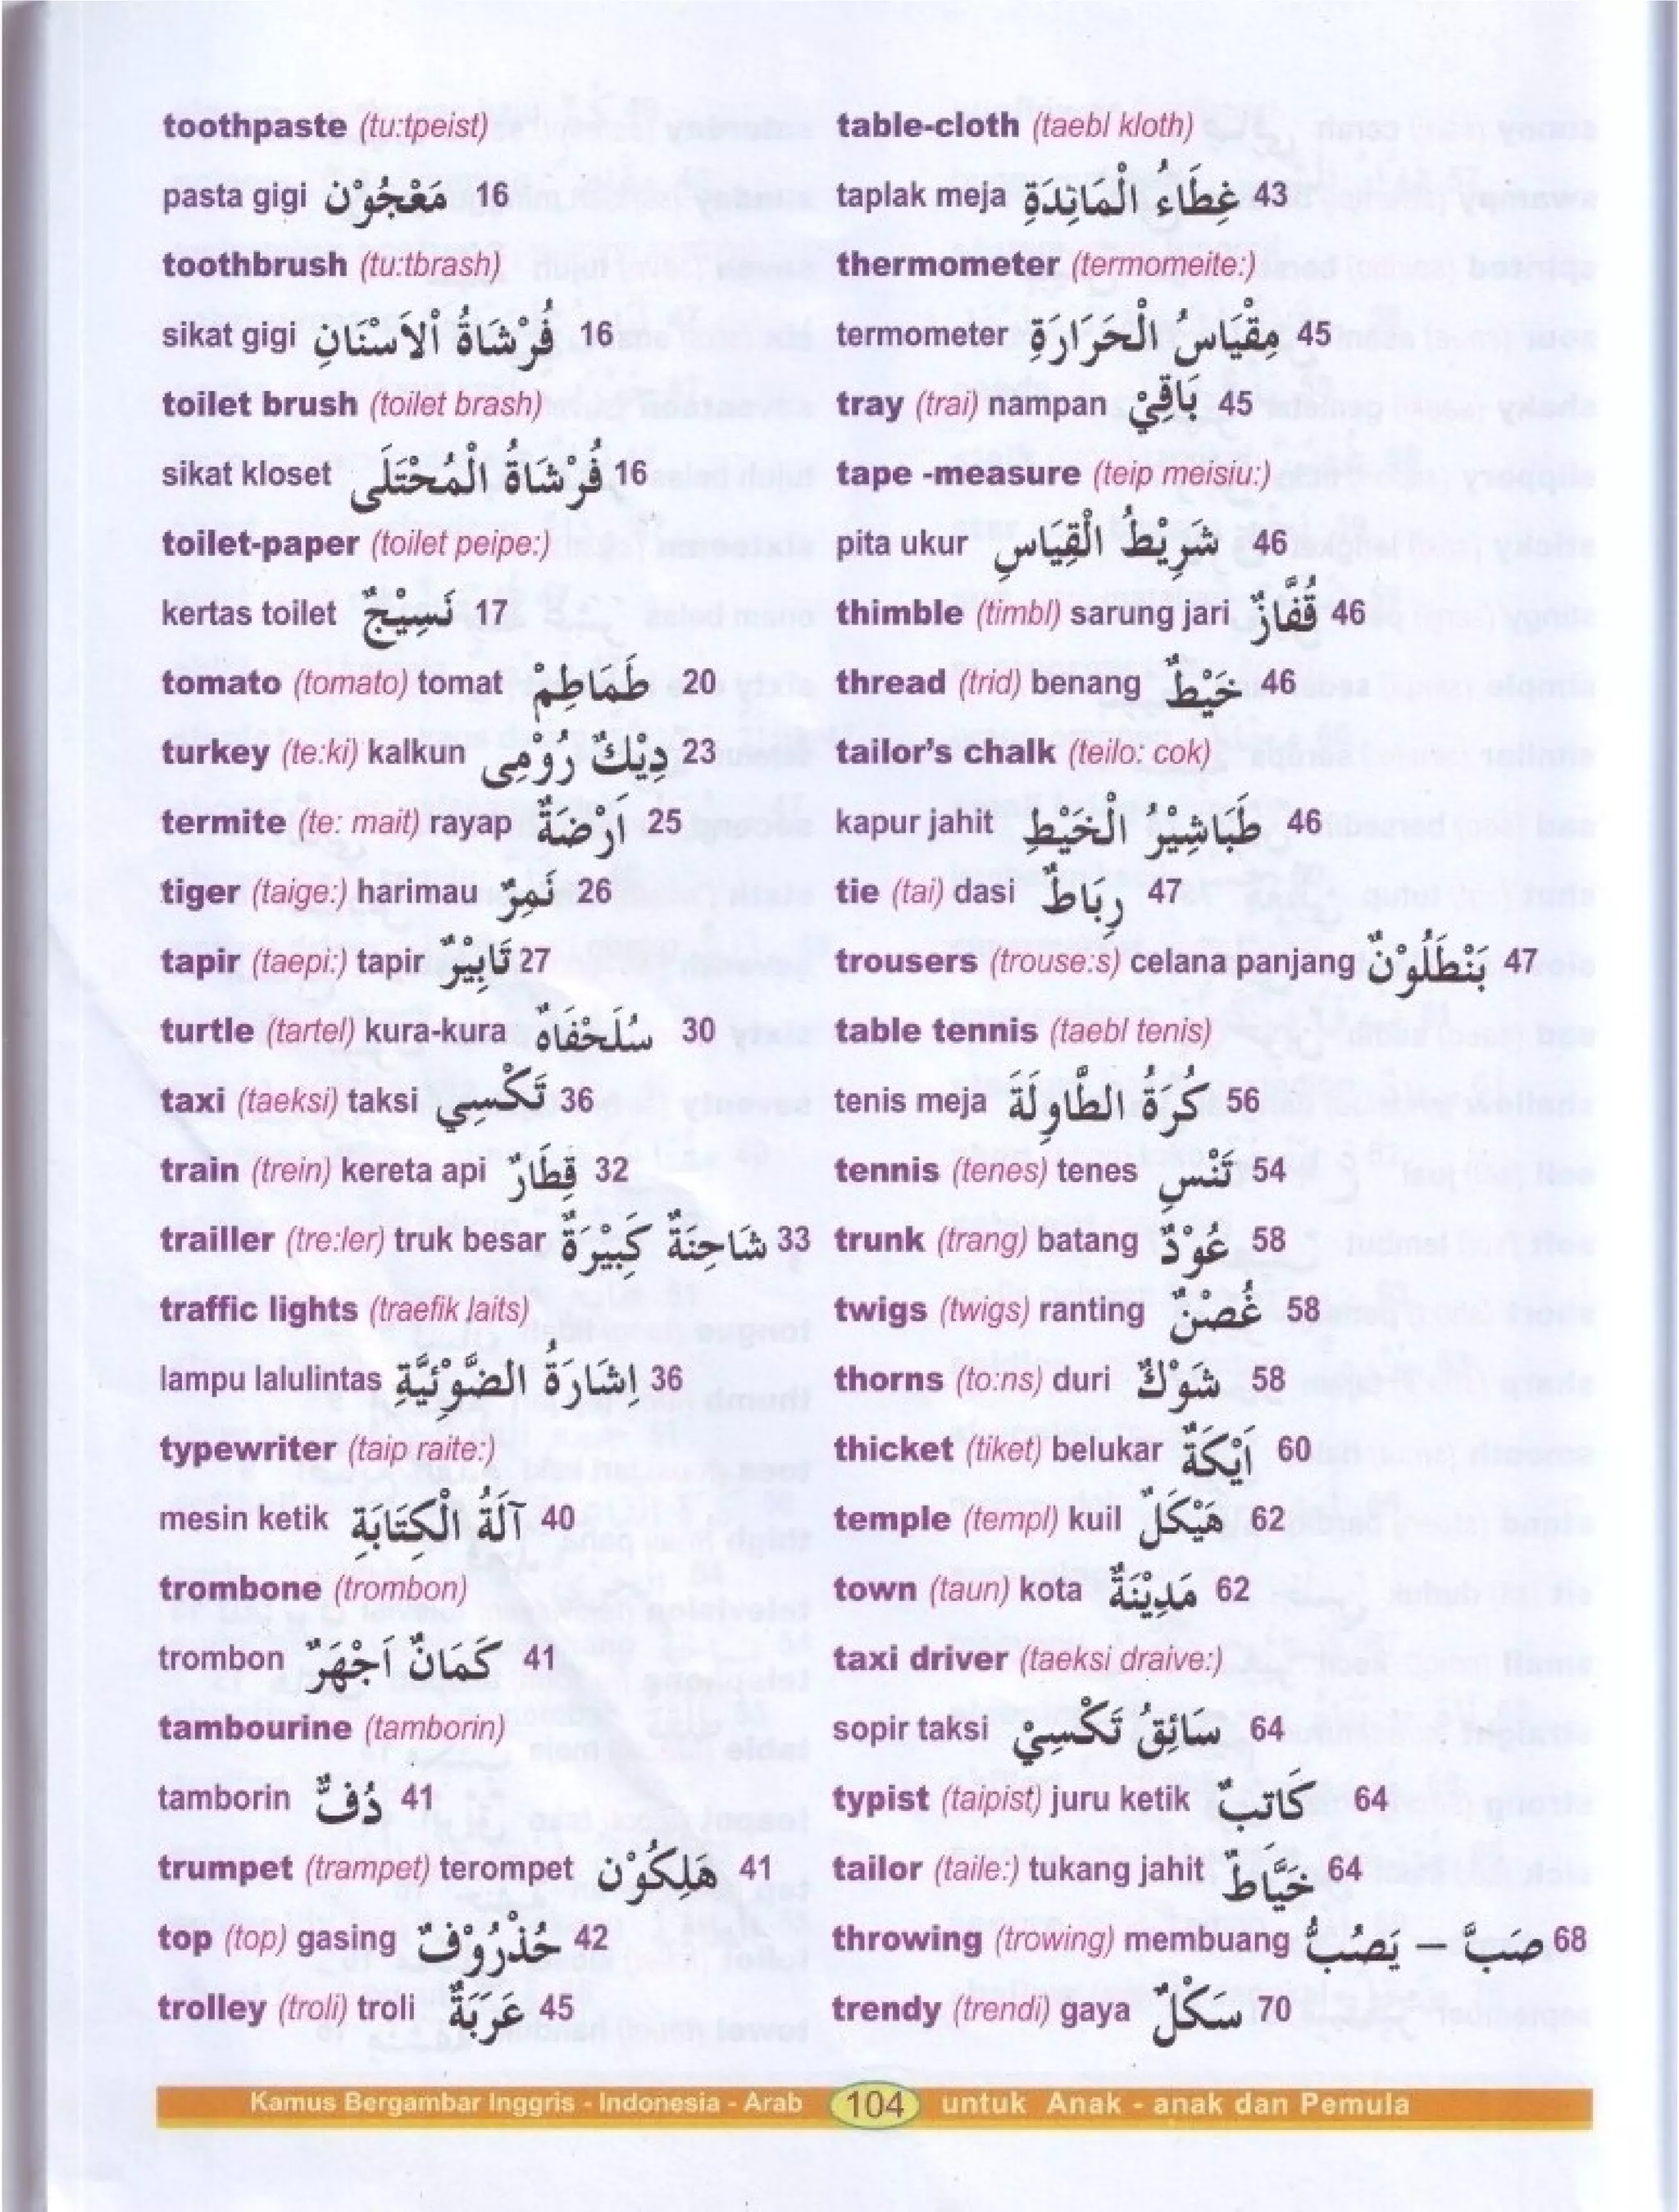 toothpaste (tu:tpeist)
pasta gigi مَعْجُوْن 16
toothbrush (tu:tbrash)
sikat gigi فُرْشَاةُ اْلاَسْنَانِ 16
toilet brush (toilet brash)
sikat kloset فُرْشَاةُ الْمُحْتَلَى 16
toilet-paper (toilet peipe:)
kertas toilet نَسِيْجٌ 17
tomato (tomato) tomat طَمَاطِمْ 20
turkey (te:ki) kalkun دِيْكٌ رُوْمِى 23
termite (te: mait) rayap اَرضَةٌ 25
tiger (taige:) harimau نَمِرٌ 26
tapir (taepi:) tapir تَابِيْرٌ 27
turtle (tartel) kura-kura سُلَحْفَاهٌ 30
taxi (taeksi) taksi تَكْسِي 36
train (trein) kereta api قِطَارٌ 32
trailler (tre:ler) truk besar شَاحِنَةٌ كَبِيْرَةٌ 33
traffic lights (traefik laits)
lampu lalulintas اِشَارَةُ الضَّوْئِيَّةِ 36
typewriter (taip raite:)
mesin ketik آلَةُ الْكِتَابَةِ 40
trombone (trombon)
trombon كَمَانٌ اَجْهَرٌ 41
tambourine (tamborin)
tamborin دُفٌّ 41
trumpet (trampet) terompet هَلِكُوْن 41
top (top) gasing خُذْرُوْفٌ 42
trolley (troli) troli عَرَبَةٌ 45
table-cloth (taebl kloth)
taplak meja غِطَاءُ الْمَائِدَةِ 43
thermometer (termomeite:)
termometer مِقْيَاسُ الْحَرَارَةِ 45
tray (trai) nampan بَاقِيْ 45
tape -measure (teip meisiu:)
pita ukur شَرِيْطُ الْقِيَاسِ 46
thimble (timbl) sarung jari قُفَّازٌ 46
thread (trid) benang خَيْطٌ 46
tailor's chalk (teilo: cok)
kapur jahit طَبَاشِيْرُ الْخَيْطِ 46
tie (tai) dasi رِبَاطٌ 47
trousers (trouse:s) celana panjang بَنْطَلُوْنٌ 47
table tennis (taebl tenis)
tenis meja كُرَةُ الطَّاوِلَةَ 56
tennis (tenes) tenes تَنْسِ 54
trunk (trang) batang عُوْدٌ 58
twigs (twigs) ranting غُصْنٌ 58
thorns (to:ns) duri شَوْكٌ 58
thicket (tiket) belukar اَيْكَةٌ 60
temple (templ) kuil هَيْكَلٌ 62
town (taun) kota مَدِيْنَةٌ 62
taxi driver (taeksi draive:)
sopir taksi سَائِقُ تَكْسِيْ 64
typist (taipist) juru ketik كَاتِبٌ 64
tailor (taile:) tukang jahit خَيَّاطٌ 64
throwing (trowing) membuang صَبَّ – يَصُبُّ 68
trendy (trendi) gaya سَكْلٌ 70
Kamus Bergambar Inggris - Indonesia - Arab 104 untuk Anak - anak dan Pemula